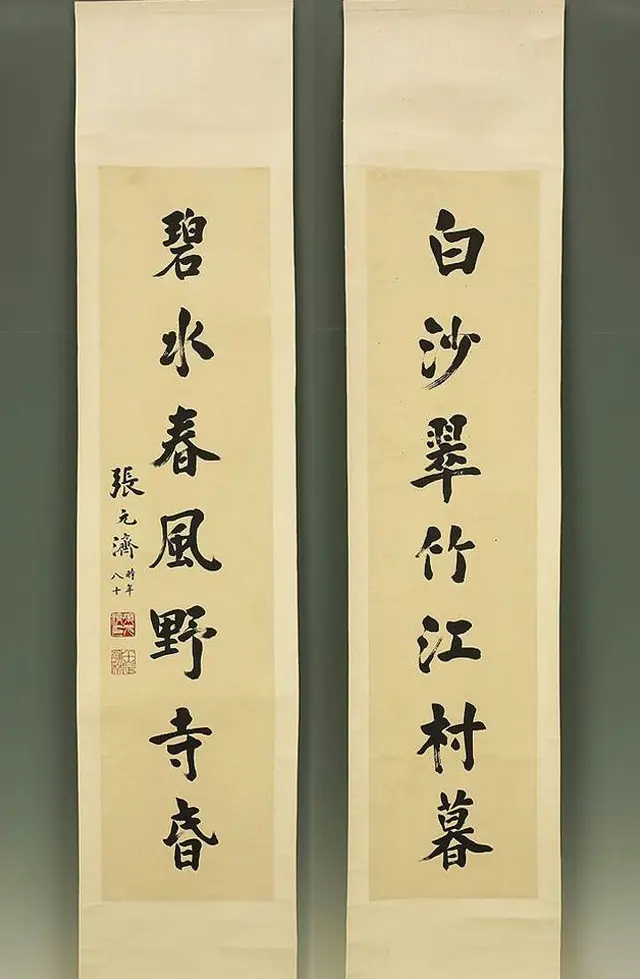 白沙翠竹江村暮
碧水春風野寺昏
張元濟
時年
八十